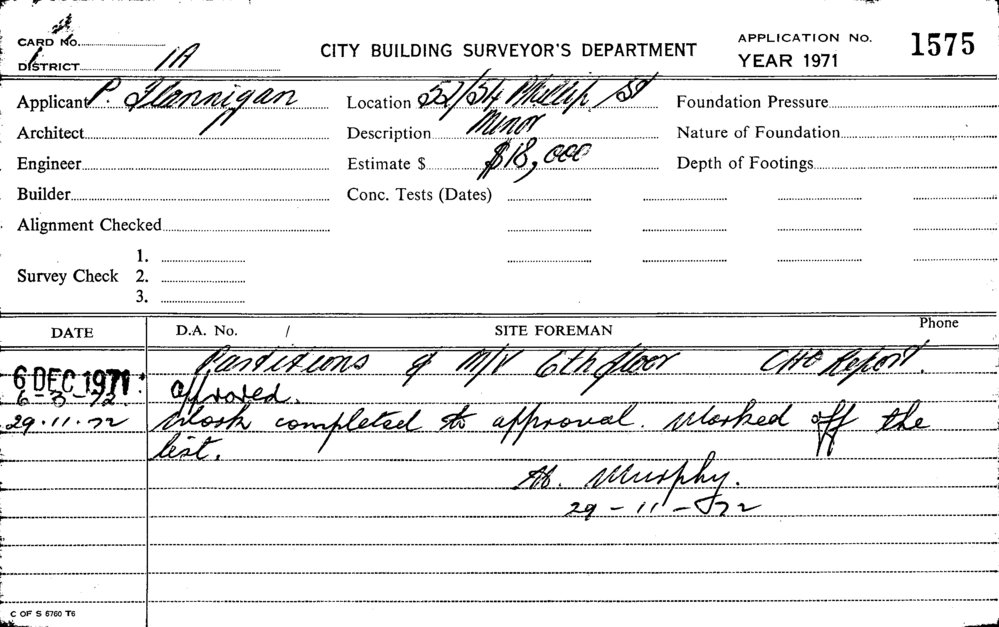 CARD No.
DISTRICT 1A
CITY BUILDING SURVEYOR'S DEPARTMENT
APPLICATION No. 1575
YEAR 1971
Applicant P. Flannigan
Location 52/54 Phillip St
Foundation Pressure
Architect
Description Minor
Nature of Foundation
Engineer
Estimate $ $18,000
Depth of Footings
Builder
Conc. Tests (Dates)
Alignment Checked
1.
Survey Check 2.
3.
DATE D.A. No. / SITE FOREMAN Phone
6 DEC 1971 Partitions & M/V 6th floor CHO Report.
6-3-72 approved.
29.11.72 Work completed to approval. Marked off the
list.
Murphy.
29-11-72
C OF S 5760 T6